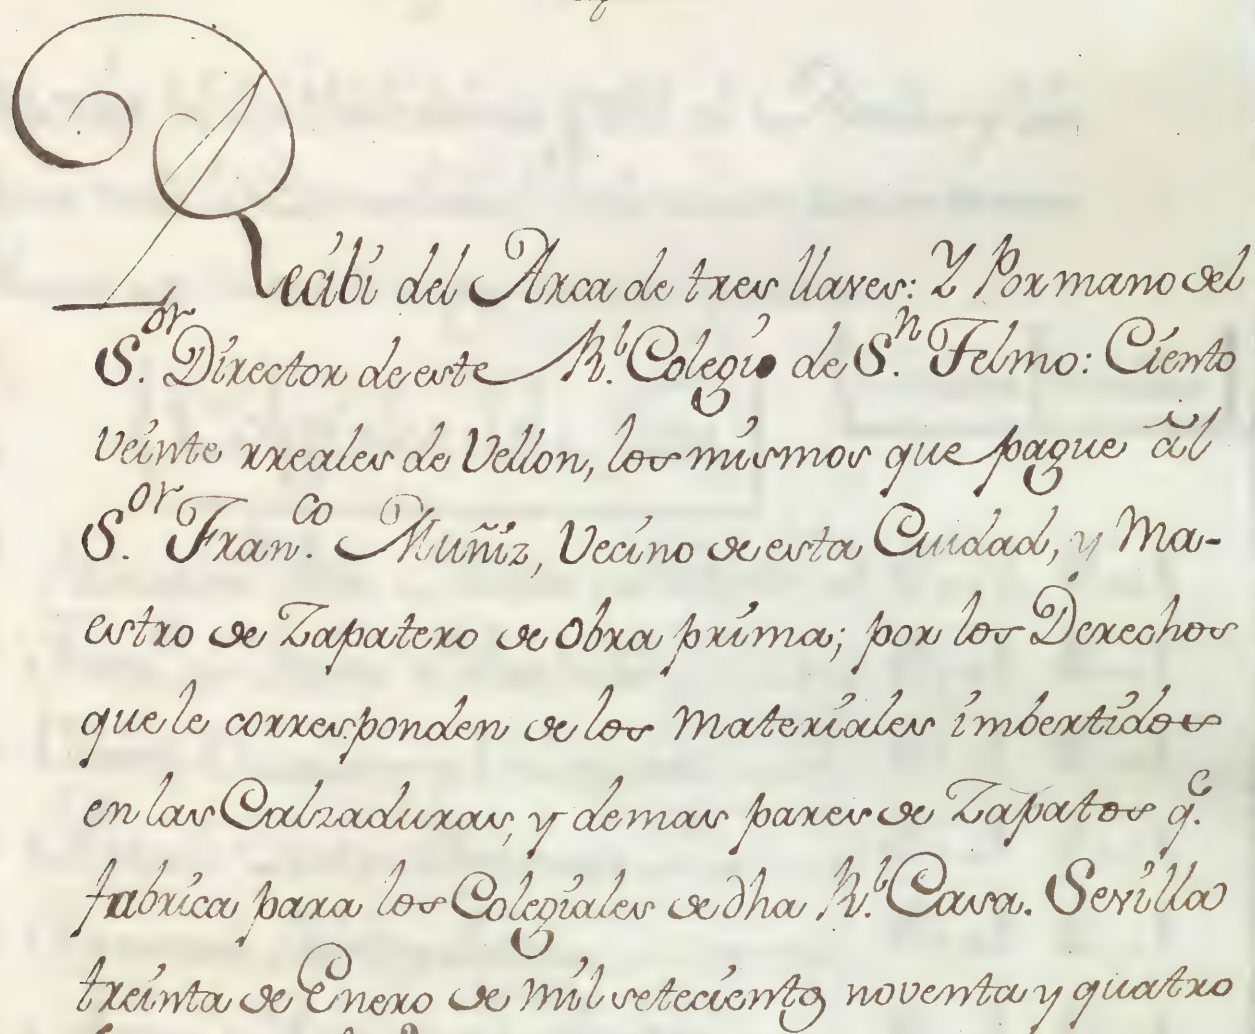 Recibi del Arca de tres llaves: Y Por mano del
S.or Director de este R.l Colegio de S.n Telmo: Ciento
veinte rreales de Vellon, los mismos que pague àl
S.or Fran.co Muñiz, Vecino de esta Cuidad, y Ma-
estro de Zapatero de obra prima; por los Derechos
que le corresponden de los Materiales imbertidos
en las Calzaduras, y demas pares de Zapatos q.e
fabrica para los Colegiales de dha R.l Casa. Sevilla
treinta de Enero de mil setecientos noventa y quatro